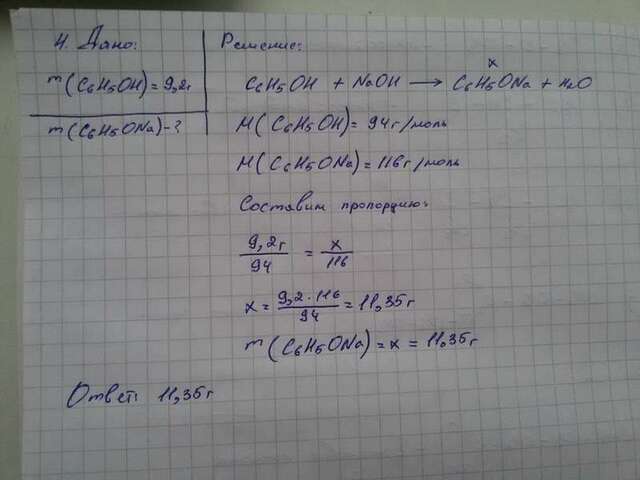 4. Дано:
m(C6H5OH)=9,2г
m(C6H5ONa)-?
Решение:
x
C6H5OH + NaOH → C6H5ONa + H2O
M(C6H5OH)=94г/моль
M(C6H5ONa)=116г/моль
Составим пропорцию:
9,2г/94 = x/116
x=9,2·116/94=11,35г
m(C6H5ONa)=x=11,35г
Ответ: 11,35г